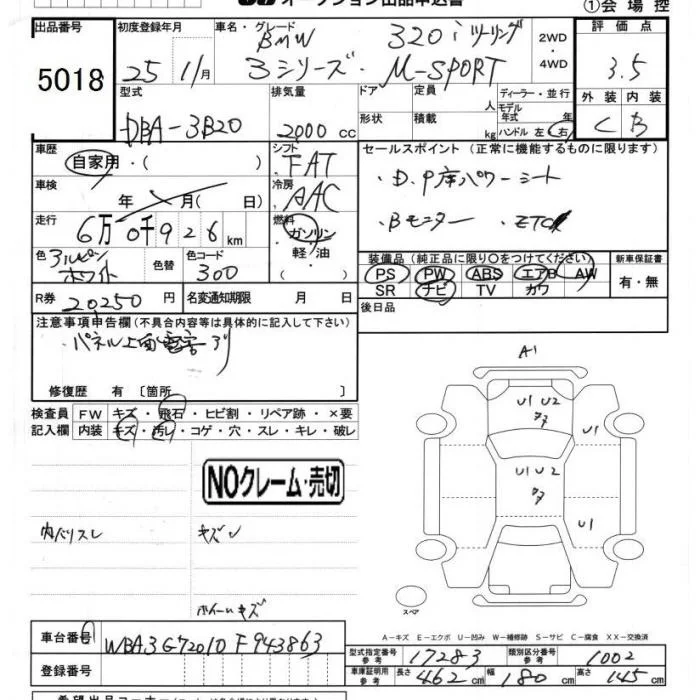 オークション出品申込書 ①会場控
出品番号 初度登録年月 車名・グレード 2WD・4WD 評価点
5018 25年11月 BMW 320iツーリング 3シリーズ・M-SPORT 3.5
型式 排気量 ドア 定員 人 ディーラー・並行 外装 内装
DBA-3B20 2000cc 形状 積載 kg モデル年式 年 ハンドル 左・右 C B
車歴 自家用・( ) シフト FAT セールスポイント (正常に機能するものに限ります)
車検 年 月( 日) 冷房 AAC ・D.P席パワーシート
走行 6万0千926km 燃料 ガソリン・軽油・( ) ・Bモニター ・ETC
色 アルピンホワイト 色替 色コード 300 装備品(純正品に限り○をつけてください) 新車保証書
PS PW ABS エアB AW 有・無
SR ナビ TV カワ
R券 20,250円 名変通知期限 月 日 後日品
注意事項申告欄(不具合内容等は具体的に記入して下さい)
・パネル上面
修復歴 有 [箇所 ]
検査員 FW キズ・飛石・ヒビ割・リペア跡・×要
記入欄 内装 キズ・汚レ・コゲ・穴・スレ・キレ・破レ
A1
U1 U2
U1
U1 U2
U1
NOクレーム・売切
内バリスレ キズ
ホイールキズ
スペア
A-キズ E-エクボ U-凹み W-補修跡 S-サビ C-腐食 XX-交換済
車台番号 WBA3G72010F943863
型式指定番号 参考 17283 類別区分番号 参考 1002
登録番号 車庫証明用 参考 長さ 462cm 幅 180cm 高さ 145cm
希望出品コーナー